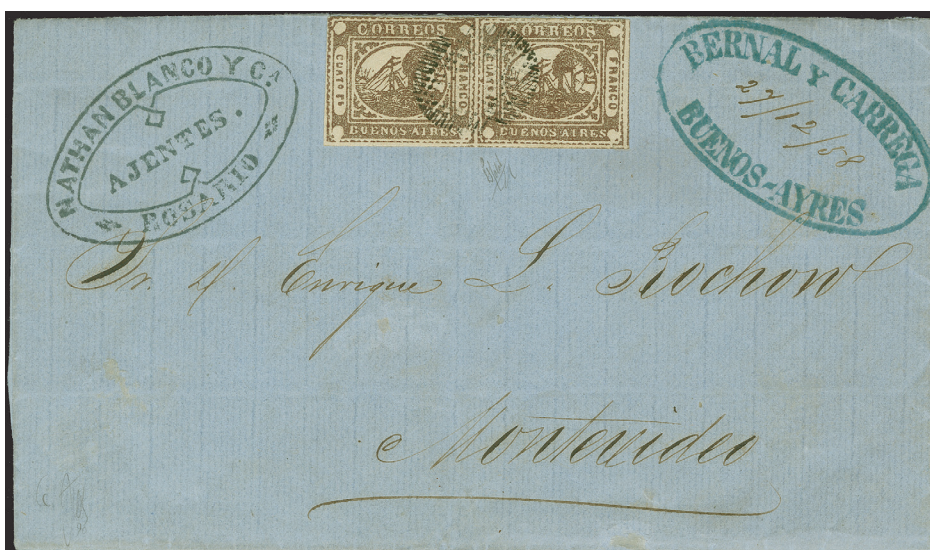 NATHAN BLANCO Y CA.
AJENTES.
ROSARIO
CORREOS
CUATO Ps
FRANCO
BUENOS AIRES
CORREOS
CUATO Ps
FRANCO
BUENOS AIRES
BERNAL Y CARREGA
27/12/58
BUENOS-AYRES
Sr. D. Enrique L. Rochow
Montevideo